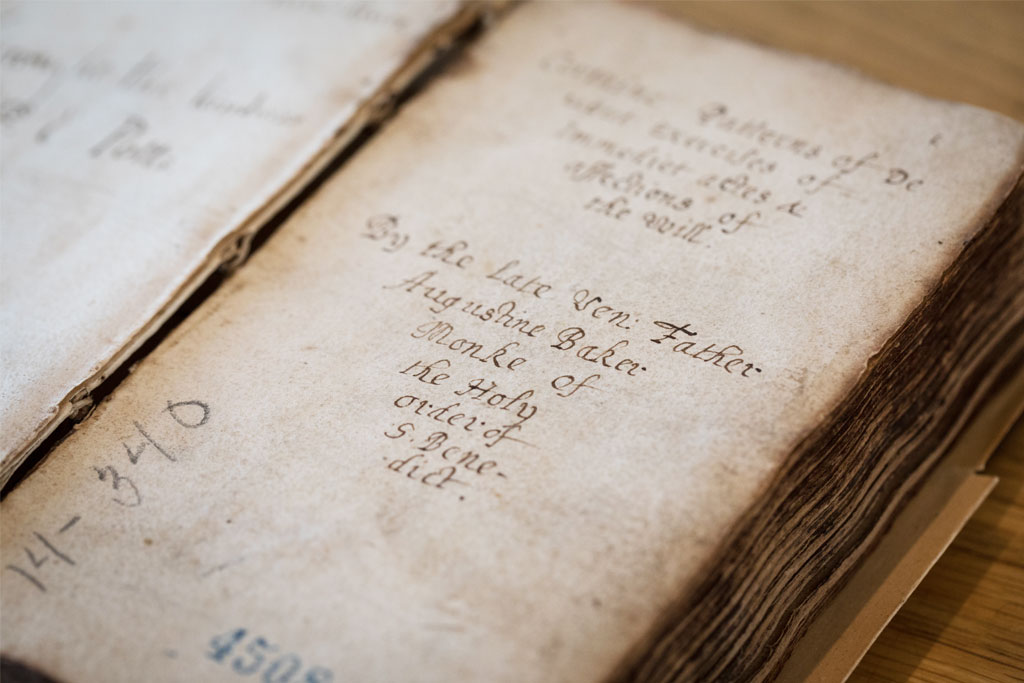 Patterns of De
vout Exercises of
Immediat actes &
affections of
the will.
By the late Ven: Father
Augustine Baker
Monke of
the Holy
order of
S. Bene-
dict.
14-340
4508